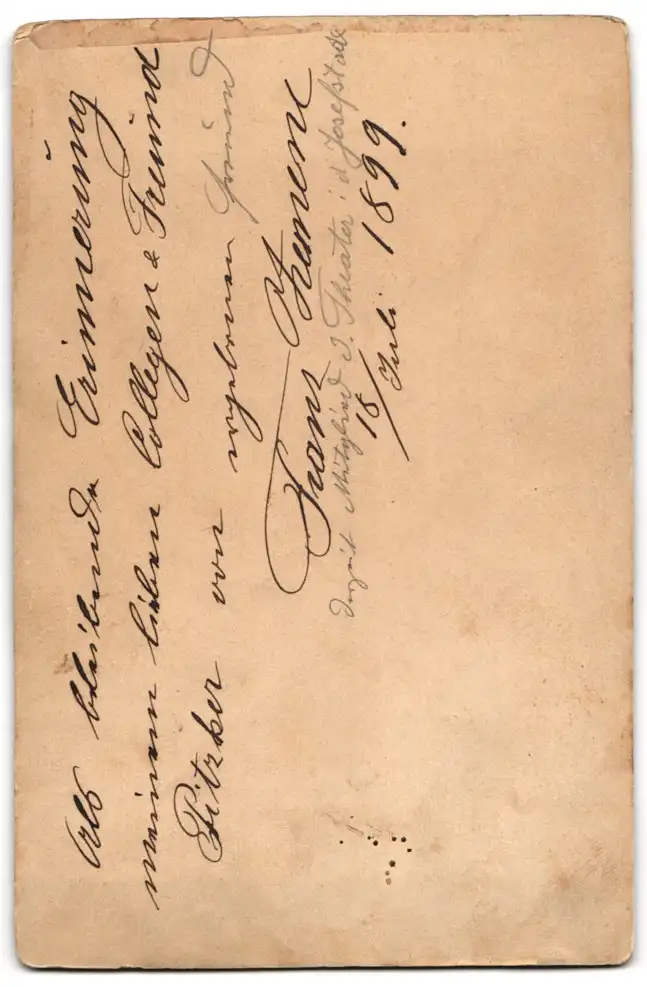 Als bleibende Erinnerung
meinem lieben Collegen & Freund
Pitzker von ergebenen Freund
Franz
Mitglied d. Theater i d Josefstadt
18/Juli 1899.